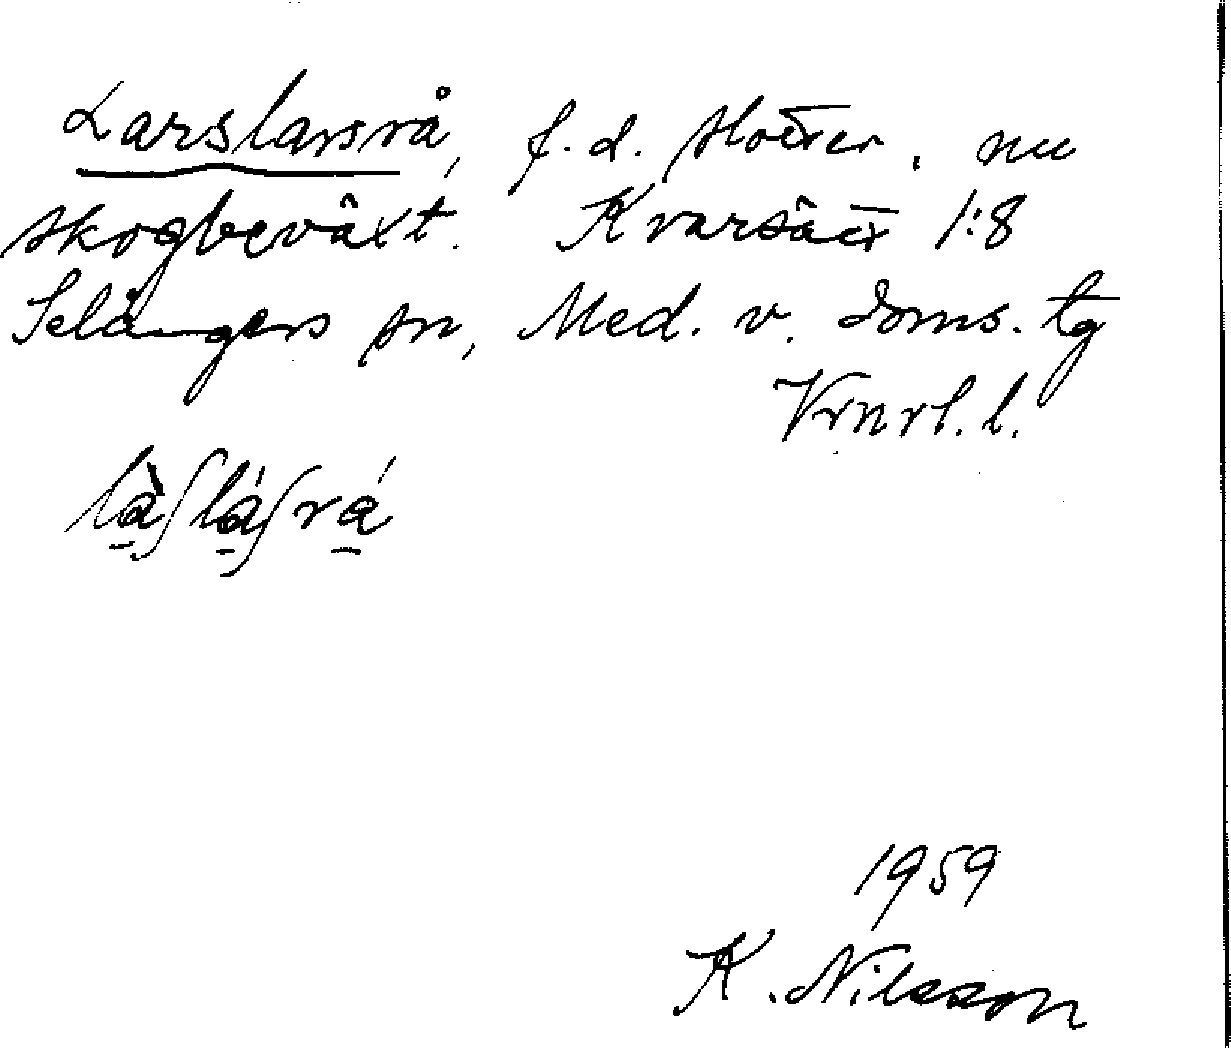 Larslarsrå, f.d. slotter, nu
skogbeväxt. Kvarsätt 1:8
Selångers sn, Med. v. doms. tg
Vrnrl. l.
làʃláʃrá
1959
K. Nilsson